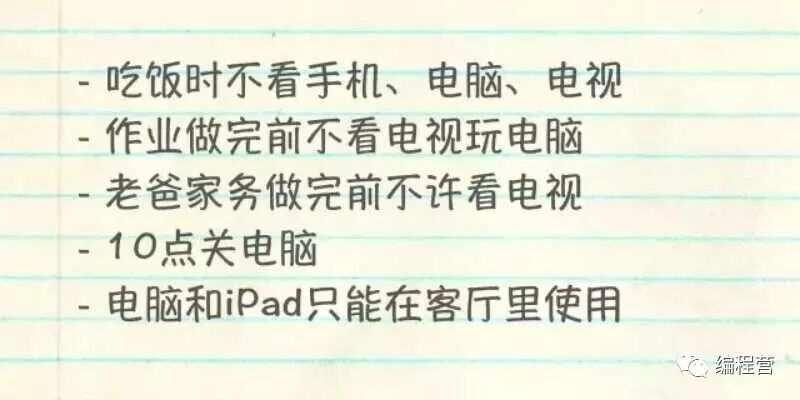 - 吃饭时不看手机、电脑、电视
- 作业做完前不看电视玩电脑
- 老爸家务做完前不许看电视
- 10点关电脑
- 电脑和iPad只能在客厅里使用
编程营